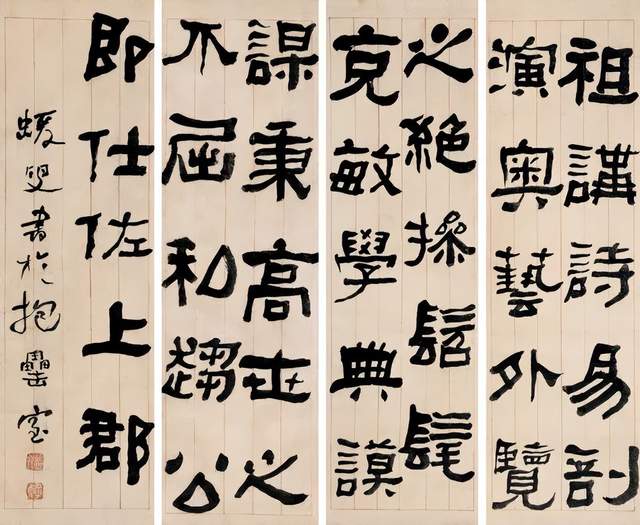 祖講詩易剖
演奧藝外覽
之絕操髫髦
克敏學典謨
謀秉高世之
不屈和趨公
即仕佐上郡
蝯叟書於抱罍室